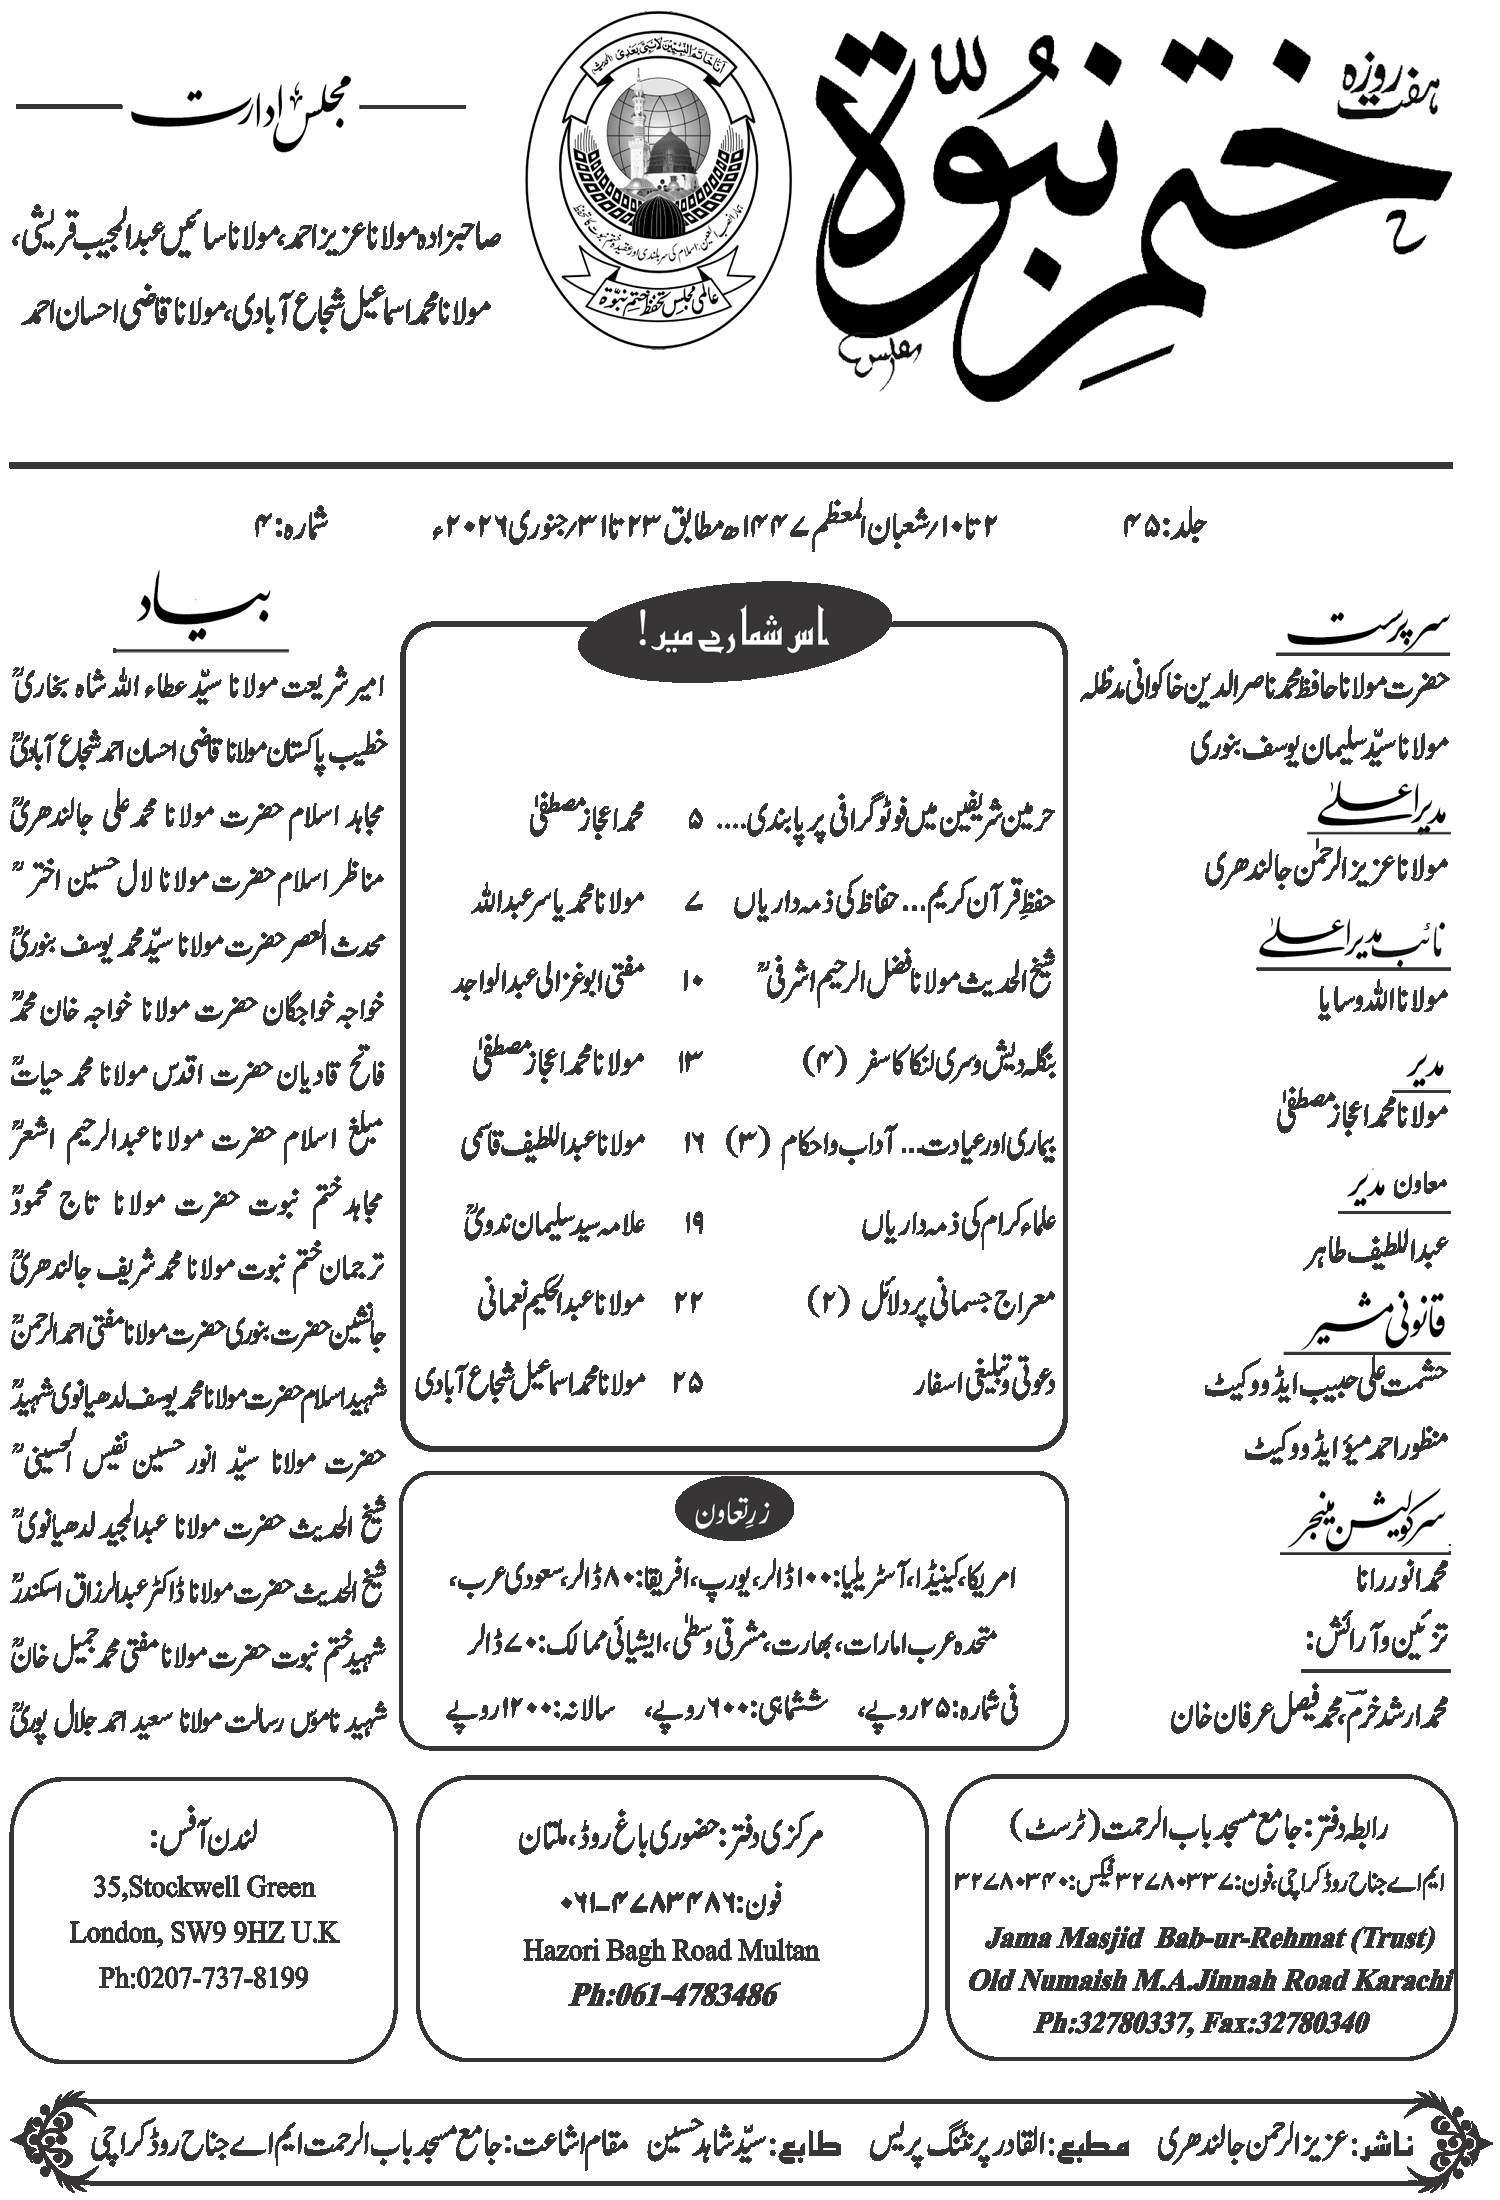 ہفت روزہ
ختم نبوّۃ
مجلس ادارت
صاحبزادہ مولانا عزیز احمد، مولانا سائیں عبدالمجیب قریشی،
مولانا محمد اسماعیل شجاع آبادی، مولانا قاضی احسان احمد
عالمی مجلس تحفظ ختم نبوۃ
جلد: ۴۵
۲ تا ۱۰؍شعبان المعظم ۱۴۴۷ھ مطابق ۲۳ تا ۳۱؍جنوری ۲۰۲۶ء
شمارہ: ۴
سرپرست
حضرت مولانا حافظ محمد ناصر الدین خاکوانی مدظلہ
مولانا سیّد سلیمان یوسف بنوری
مدیر اعلےٰ
مولانا عزیز الرحمٰن جالندھری
نائب مدیر اعلےٰ
مولانا اللہ وسایا
مدیر
مولانا محمد اعجاز مصطفیٰ
معاون مدیر
عبداللطیف طاہر
قانونی مشیر
حشمت علی حبیب ایڈووکیٹ
منظور احمد میؤ ایڈووکیٹ
سرکولیشن مینجر
محمد انور رانا
تزئین و آرائش:
محمد ارشد خرم، محمد فیصل عرفان خان
اس شمارے میں!
حرمین شریفین میں فوٹوگرافی پر پابندی.... ۵ محمد اعجاز مصطفیٰ
حفظِ قرآن کریم... حفاظ کی ذمہ داریاں ۷ مولانا محمد یاسر عبداللہ
شیخ الحدیث مولانا فضل الرحیم اشرفیؒ ۱۰ مفتی ابوغزالی عبدالواجد
بنگلہ دیش و سری لنکا کا سفر (۴) ۱۳ مولانا محمد اعجاز مصطفیٰ
بیماری اور عیادت... آداب و احکام (۳) ۱۶ مولانا عبداللطیف قاسمی
علماء کرام کی ذمہ داریاں ۱۹ علامہ سید سلیمان ندویؒ
معراج جسمانی پر دلائل (۲) ۲۲ مولانا عبدالحکیم نعمانی
دعوتی و تبلیغی اسفار ۲۵ مولانا محمد اسماعیل شجاع آبادی
زرِتعاون
امریکا، کینیڈا، آسٹریلیا: ۱۰۰ ڈالر، یورپ، افریقا: ۸۰ ڈالر، سعودی عرب،
متحدہ عرب امارات، بھارت، مشرق وسطٰی، ایشیائی ممالک: ۷۰ ڈالر
فی شمارہ: ۲۵ روپے، ششماہی: ۶۰۰ روپے، سالانہ: ۱۲۰۰ روپے
بیاد
امیر شریعت مولانا سیّد عطاء اللہ شاہ بخاریؒ
خطیب پاکستان مولانا قاضی احسان احمد شجاع آبادیؒ
مجاہد اسلام حضرت مولانا محمد علی جالندھریؒ
مناظر اسلام حضرت مولانا لال حسین اخترؒ
محدث العصر حضرت مولانا سیّد محمد یوسف بنوریؒ
خواجہ خواجگان حضرت مولانا خواجہ خان محمدؒ
فاتح قادیان حضرت اقدس مولانا محمد حیاتؒ
مبلغ اسلام حضرت مولانا عبدالرحیم اشعرؒ
مجاہد ختم نبوت حضرت مولانا تاج محمودؒ
ترجمان ختم نبوت مولانا محمد شریف جالندھریؒ
جانشین حضرت بنوری حضرت مولانا مفتی احمد الرحمنؒ
شہید اسلام حضرت مولانا محمد یوسف لدھیانوی شہیدؒ
حضرت مولانا سیّد انور حسین نفیس الحسینیؒ
شیخ الحدیث حضرت مولانا عبدالمجید لدھیانویؒ
شیخ الحدیث حضرت مولانا ڈاکٹر عبدالرزاق اسکندرؒ
شہید ختم نبوت حضرت مولانا مفتی محمد جمیل خانؒ
شہید ناموس رسالت مولانا سعید احمد جلال پوریؒ
رابطہ دفتر: جامع مسجد باب الرحمت (ٹرسٹ)
ایم اے جناح روڈ کراچی، فون: ۳۲۷۸۰۳۳۷ فیکس: ۳۲۷۸۰۳۴۰
Jama Masjid Bab-ur-Rehmat (Trust)
Old Numaish M.A.Jinnah Road Karachi
Ph:32780337, Fax:32780340
مرکزی دفتر: حضوری باغ روڈ، ملتان
فون: ۰۶۱-۴۷۸۳۴۸۶
Hazori Bagh Road Multan
Ph:061-4783486
لندن آفس:
35,Stockwell Green
London, SW9 9HZ U.K
Ph:0207-737-8199
ناشر: عزیز الرحمن جالندھری مطبع: القادر پرنٹنگ پریس طابع: سیّد شاہد حسین مقام اشاعت: جامع مسجد باب الرحمت ایم اے جناح روڈ کراچی